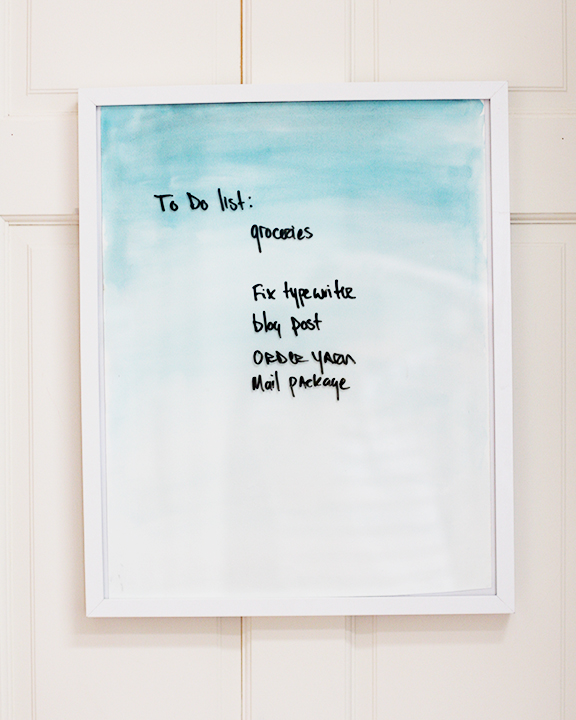 To Do list:
groceries
Fix typewriter
blog post
ORDER YARN
Mail package